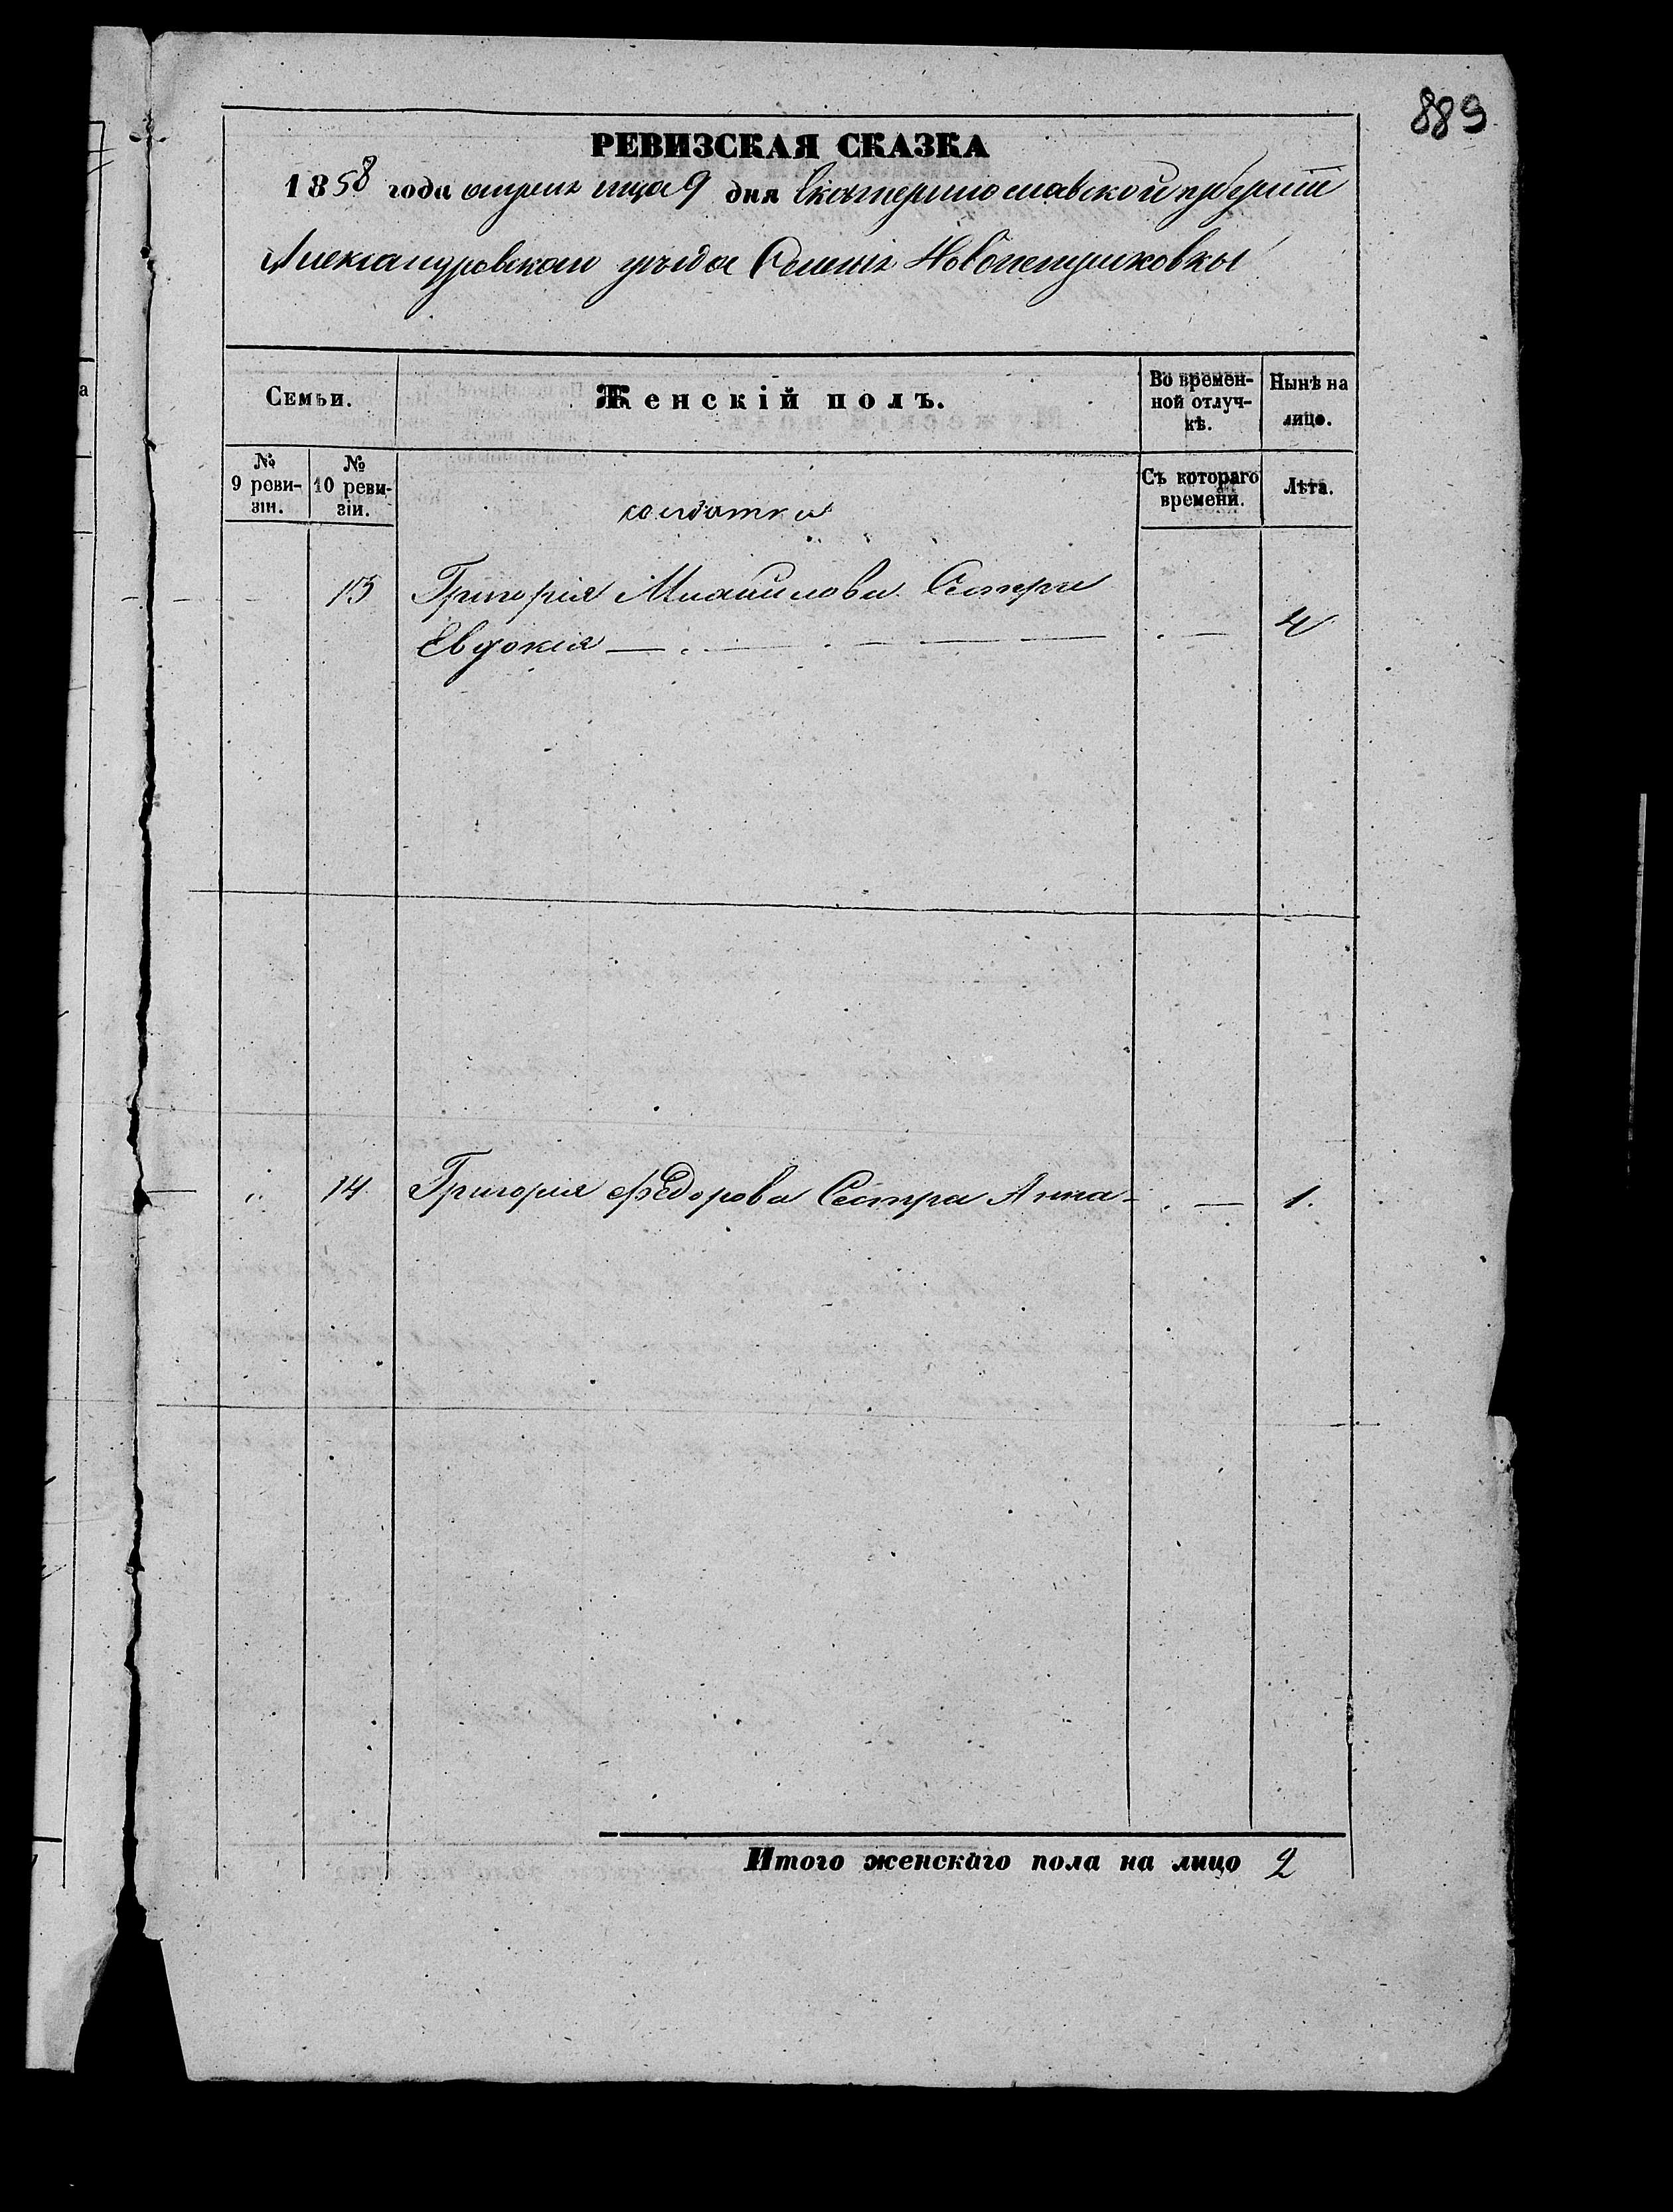 889
РЕВИЗСКАЯ СКАЗКА
1858 года апреля мца 9 дня Екатеринославской губернии
Александровскаго уезда Селенія Новопетушковки
Семьи.
Женскій полъ.
Во времен-
ной отлуч-
кѣ.
Нынѣ на
лицо.
№
9 реви-
зіи.
№
10 реви-
зіи.
Съ котораго
времени.
Лѣта.
солдатки
13 Григорія Михайлова Сестра
Евдокія — — — — 4
14 Григорія Федорова Сестра Анна — — 1.
Итого женскаго пола на лицо 2